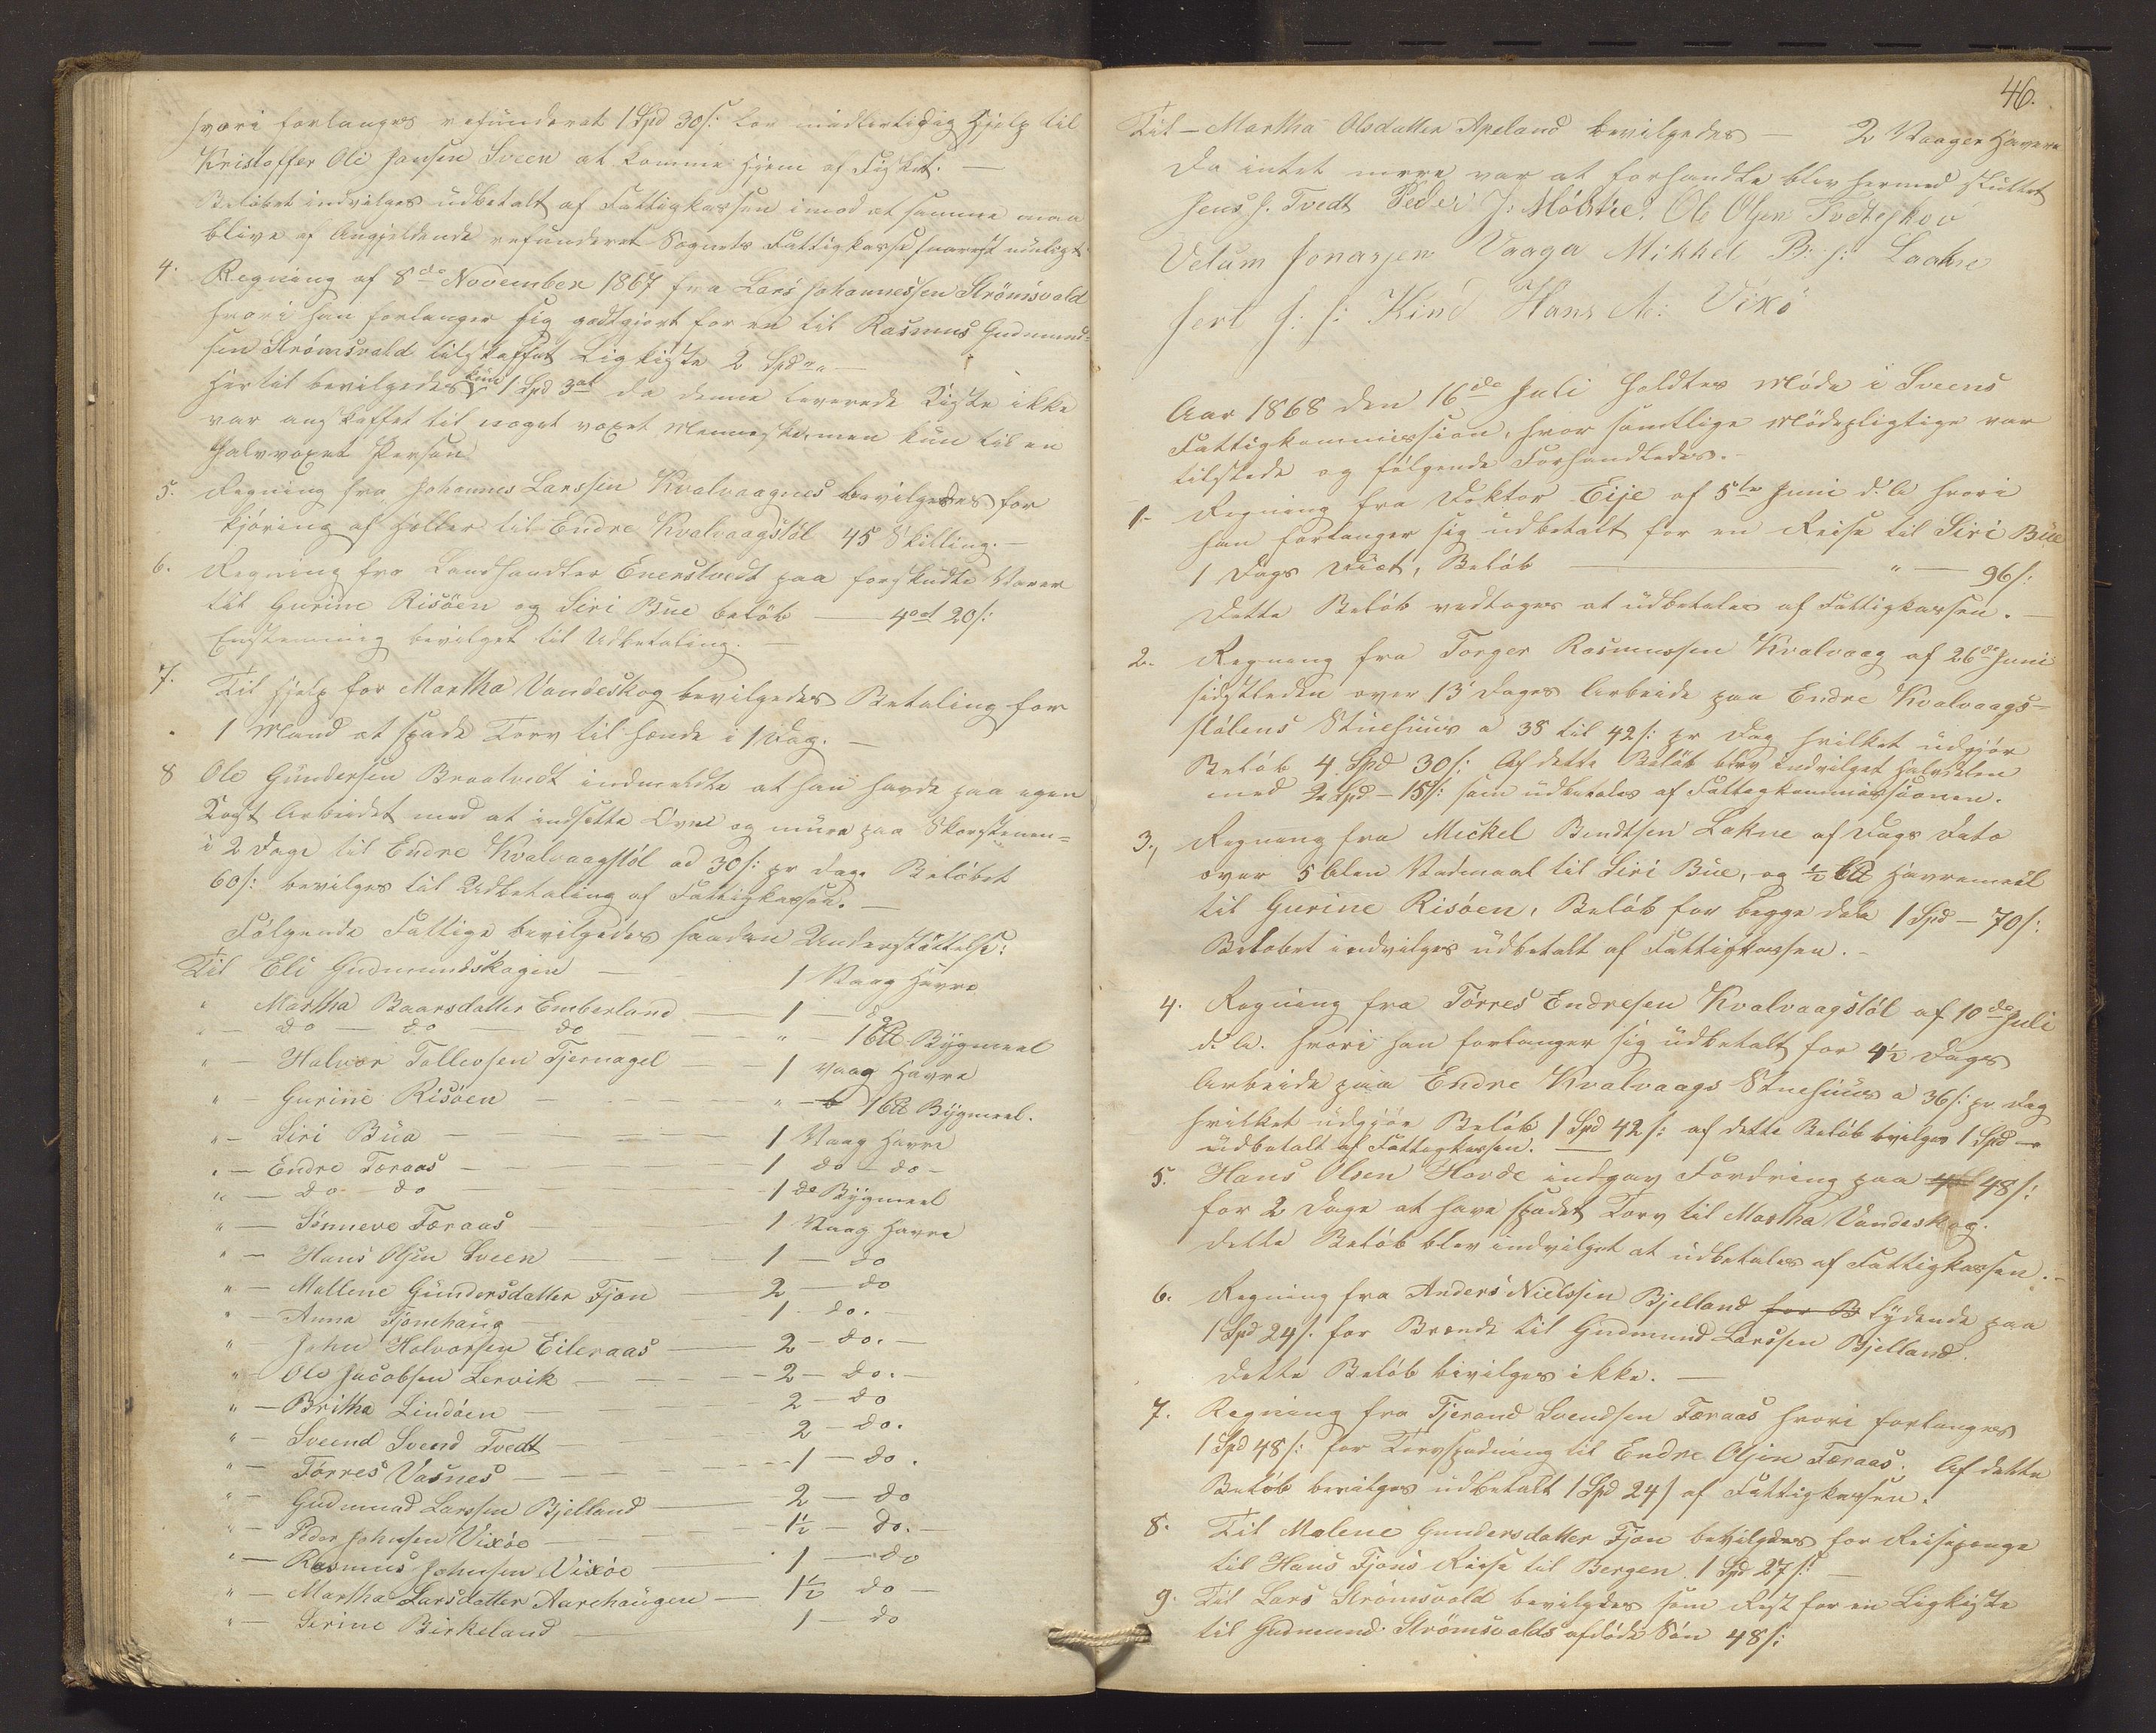 hvori forlanges refunderet 1 Spd 30 s: for midlertidig Hjelp til
Kristoffer Ole Jansen Sveen at komme hjem af Fisket. —
Beløbet indvilges udbetalt af Fattigkassen imod at samme maa
blive af Angjeldende refunderet Sognets Fattigkasse snarest muligt
4. Regning af 8de November 1867 fra Lars Johannessen Strömsvold
hvori han forlanger sig godtgjort for en til Rasmus Gudmund-
sen Strömsvold tilskaffet Ligkiste 2 Spd
Hertil bevilgedes kun 1 Spd 3 ort da denne leverede Kiste ikke
var anskaffet til noget voxet Menneske, men kun til en
halvvoxet Person
5. Regning fra Johannes Larssen Kvalvaagnes bevilgedes for
Kjöring af Heller til Endre Kvalvaagstöl 45 Skilling. —
6. Regning fra Landhandler Enerstvedt paa forskudte Varer
til Gurine Risöen og Siri Bue beløb — 4 ort 20 s:
Enstemmig bevilget til Udbetaling. —
7. Til Hjelp for Martha Vandeskog bevilgedes Betaling for
1 Mand at spade Torv til hende i 1 Dag. —
8 Ole Gundersen Braatvedt indmeldte at han havde paa egen
Kost Arbeidet med at indsette Ovne og mure paa Skorstenen
i 2 Dage til Endre Kvalvaagstöl ad 30 s: pr Dag. Beløbet
60 s: bevilges til Udbetaling af Fattigkassen. —
Følgende Fattige bevilgedes saadan Understøttelse:
Til Eli Gudmundskogen — 1 Vaag Havre
" Martha Baarsdatter Emberland — 1 — do
" — do — do — do — " — 1 b℔ Bygmeel
" — Halvor Tollevsen Tjernagel — 1 Vaag Havre
" — Gurine Risöen — " — 1 b℔ Bygmeel.
" — Siri Bua — 1 Vaag Havre
" — Endre Færaas — 1 do — do —
" — do — do — 1 do Bygmeel
" — Sönneve Færaas — 1 Vaag Havre
" — Hans Olsen Sveen — 1 — do
" — Mallene Gundersdatter Fjon — 2 — do
" — Anna Fjonehaug — 1 - do. —
" — John Halvorsen Eileraas — 2 — do. —
" — Ole Jacobsen Lervik — 2 — do. —
" — Britha Lindöen — 2 — do
" — Sveend Svend Tvedt — 2 — do.
" — Törres Vasnes — 1 — do.
" — Gudmund Larssen Bjelland — 2 — do
" — Peder Johnsen Vixöe — 1½ — do. —
" — Rasmus Johnsen Vixöe — 1 — do
" — Martha Larsdatter Aarehaugen — 1½ do —
" — Serine Birkeland — 1 — do
46.
Til — Martha Olsdatter Apeland bevilgedes — 2 Vaager Havre
Da intet mere var at forhandle blev hermed sluttet
Jens J. Tvedt Peder J: Ole Olsen
Velum Jonassen Vaaga Mikkel B: s: Laakne
J: J: Kind Hans A: Vixö
Aar 1868 den 16de Juli holdtes Möde i Sveens
Fattigkommission, hvor samtlige Mödepligtige var
tilstede og følgende Forhandledes. —
1. Regning fra Doktor Eije af 5te Juni d. A. hvori
han forlanger sig udbetalt for en Reise til Siri Bue
1 Dags Diæt, Beløb — " — 96 s:
Dette Beløb vedtages at udbetales af Fattigkassen. —
2. Regning fra Torger Rasmussen Kvalvaag af 26de Juni
sidstleden over 13 Dages Arbeide paa Endre Kvalvaag-
stölens Stuehuus a 38 til 42 s: pr Dag hvilket udgjör
Beløb 4 Spd 30 s: Af dette Beløb blev indvilget Halvdelen
med 2 Spd — 15 s: som udbetales af Fattigkommissionen.
3., Regning fra Mickel Bendtsen Lokne af Dags Dato
over 5 Alen Vadmaal til Siri Bue, og ½ b℔ Havremeel
til Gurine Risöen, Beløb for begge Dele 1 Spd — 70 s:
Beløbet indvilges udbetalt af Fattigkassen. —
4. Regning fra Törres Endresen Kvalvaagstöl af 10de Juli
d. A. hvori han forlanger sig udbetalt for 4½ Dags
Arbeide paa Endre Kvalvaags Stuehuus a 36 s: pr Dag
hvilket udgjör Beløb 1 Spd 42 s: af dette Beløb bevilges 1 Spd —
udbetalt af Fattigkassen. —
5. Hans Olsen Hovde indgav Fordring paa 48 s:
for 2 Dage at have spadet Torv til Martha Vandeskog.
Dette Beløb blev indvilget at udbetales af Fattigkassen. —
6. Regning fra Anders Nielssen Bjelland for B lydende paa
1 Spd 24 s. for Brænde til Gudmund Larssen Bjelland.
Dette Beløb bevilges ikke. —
7. Regning fra Tjerand Svendsen Færaas hvori forlanges
1 Spd 48 s: for Torvspadning til Endre Olsen Færaas. Af dette
Beløb bevilges udbetalt 1 Spd 24 s af Fattigkassen.
8. Til Malene Gundersdatter Fjon bevilgedes for Reisepenge
til Hans Fjons Reise til Bergen. 1 Spd 27 s: —
9. Til Lars Strömsvold bevilgedes som Rest for en Ligkiste
til Gudmund Strömsvolds afdøde Søn 48 s: